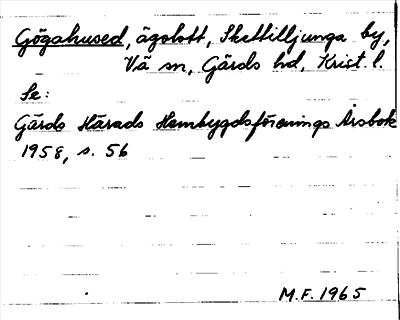 Gögahused, ägolott, Skettilljunga by,
Vä sn, Gärds hd, Krist. l.
Se:
Gärds Härads Hembygdsförenings Årsbok
1958, s. 56
M.F. 1965